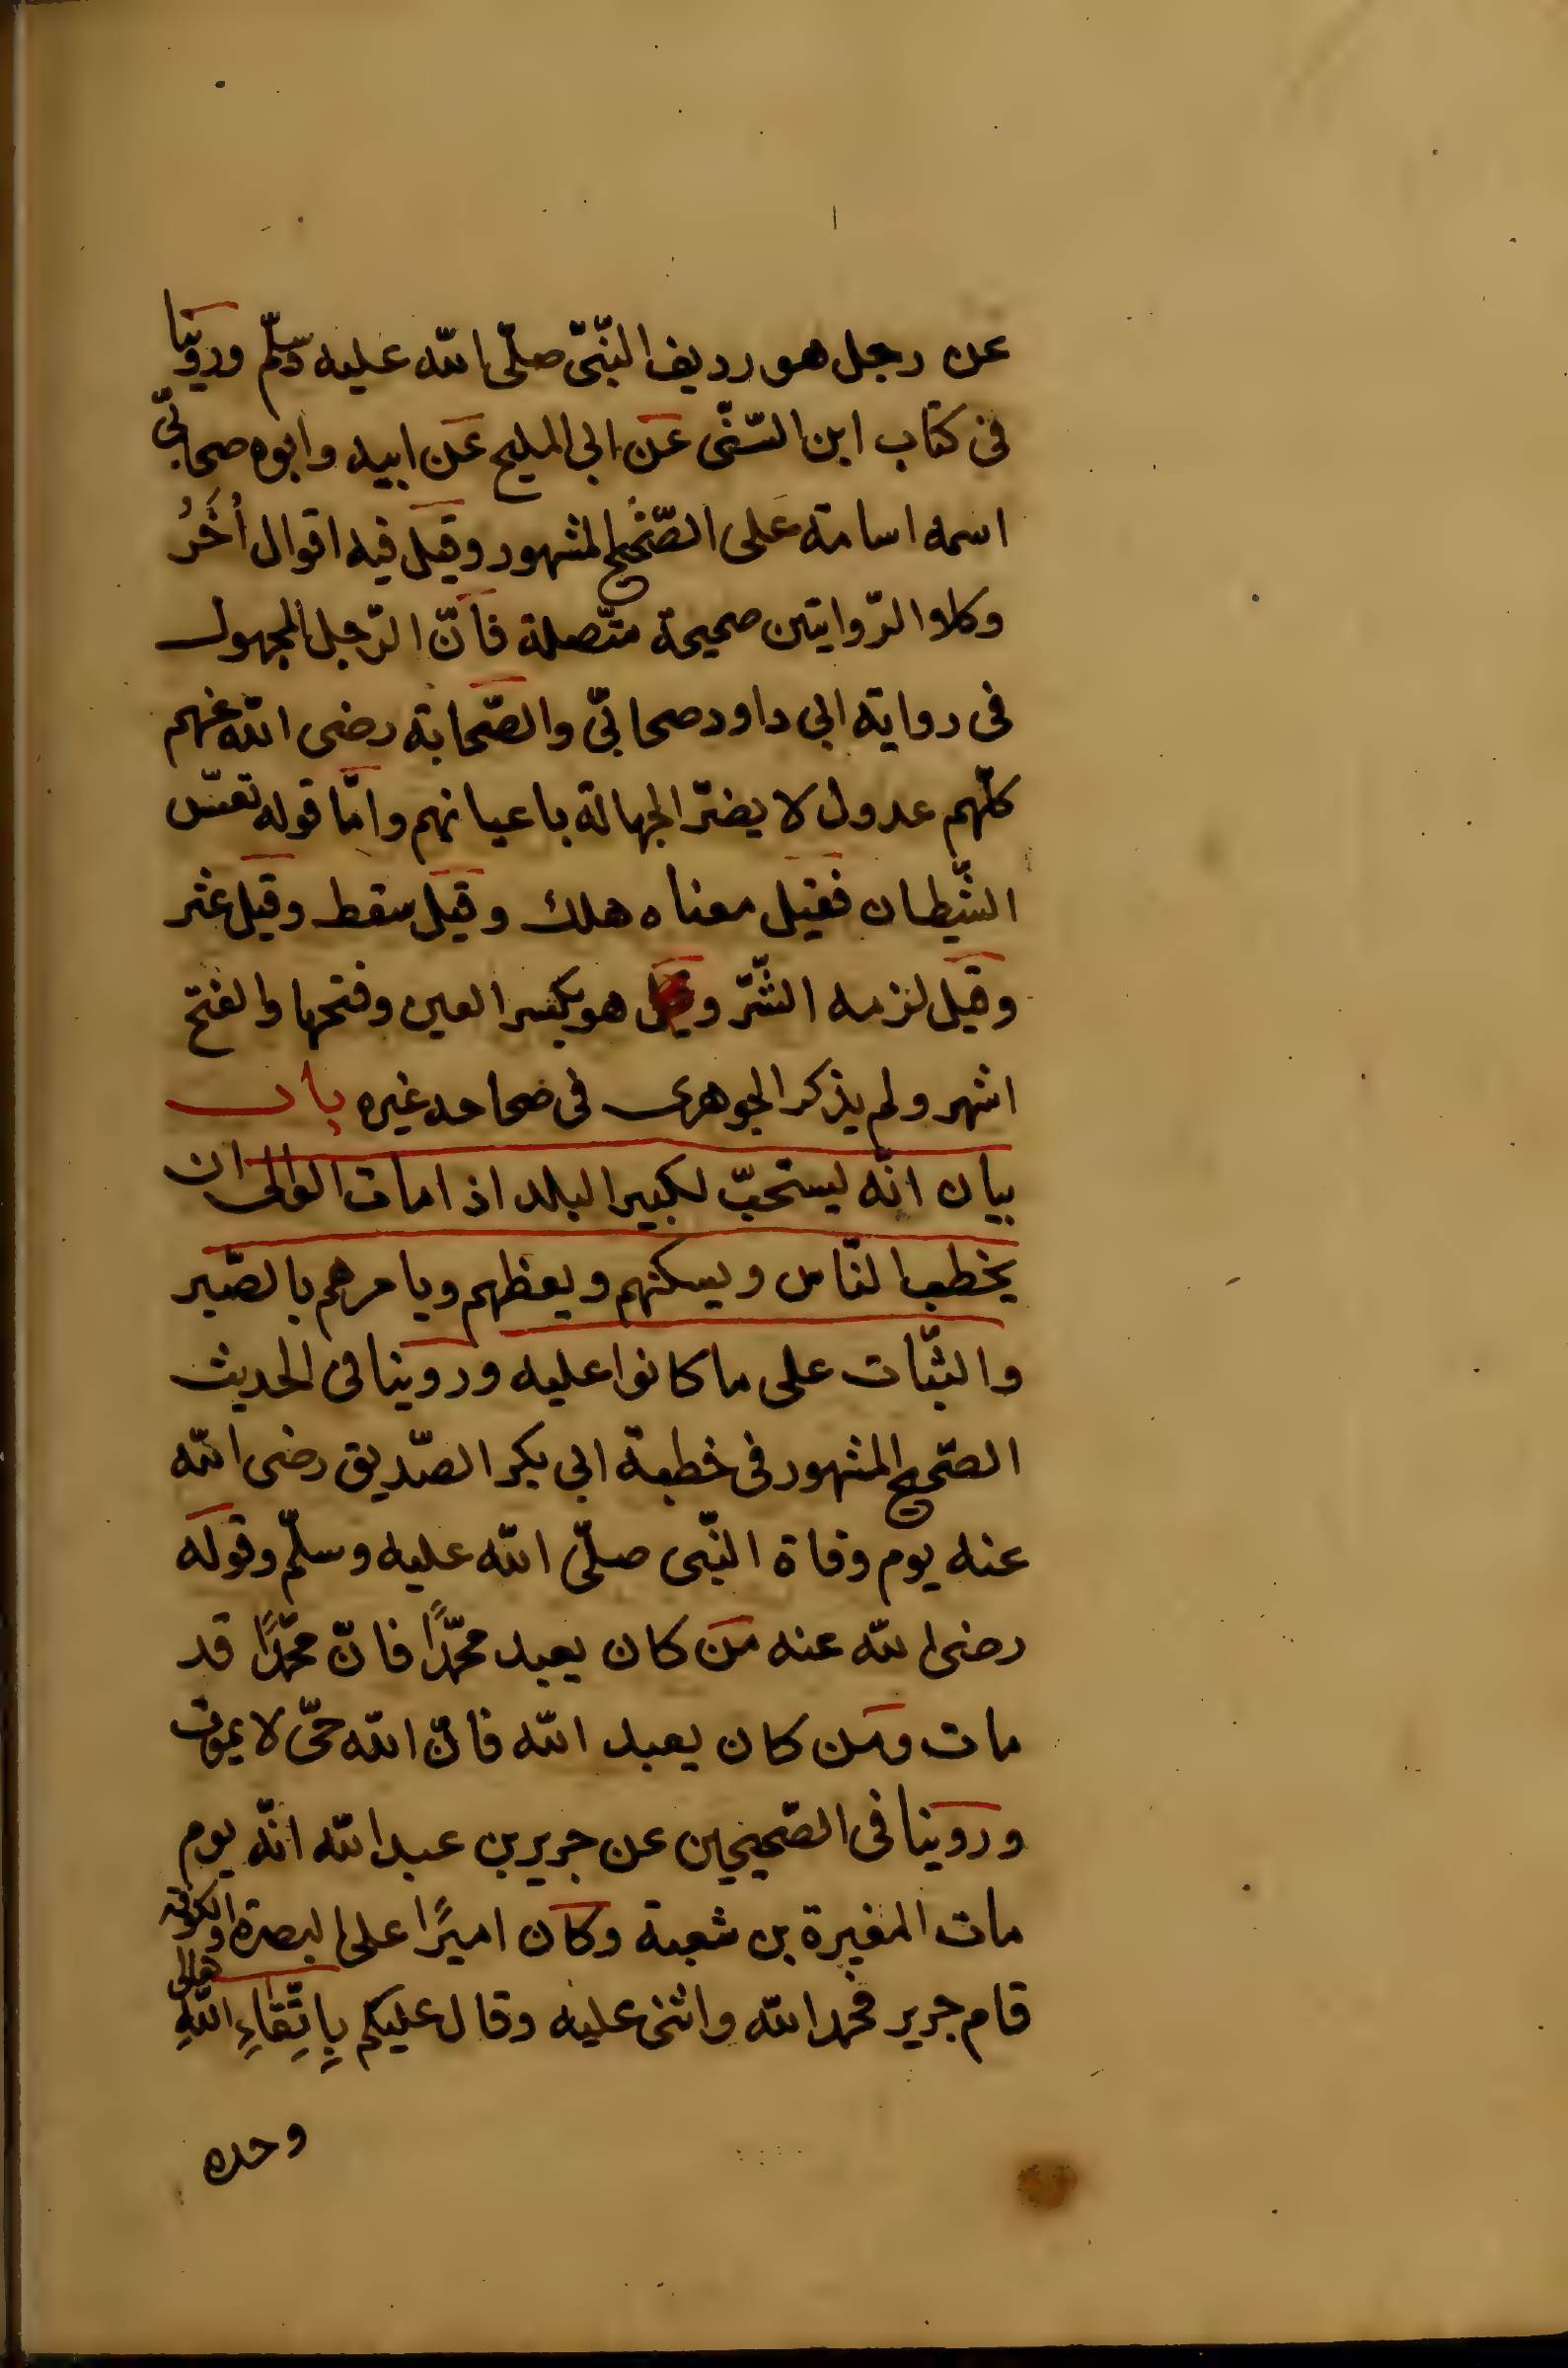 عن رجل هو رديف النّبىّ صلّى الله عليه وسلّم وروّينا
فى كتاب ابن السّنّى عَن ابى المليح عَن ابيه وابوه صحابىّ
اسمه اسامة عَلى الصّحيح المشهور وقيل فيه اقوال اُخَرُ
وكلا الرّوايتين صحيحة متّصلة فانّ الرّجل المجهول
فى رواية ابى داود صحابىّ والصّحابة رضى الله عنهم
كلّهم عدول لا يضرّ الجهالة باعيانهم وامّا قوله تعس
الشّيطان فقيل معناه هلك وقيل سقط وقيل عثر
وقيل لزمه الشّرّ وقيل هو بكسر العين وفتحها والفتح
اشهر ولم يذكر الجوهرى فى صحاحه غيره باب
بيان انّه يستحبّ لكبير البلد اذا مات الوالى ان
يخطب النّاس ويسكنهم ويعظهم ويامرهم بالصّبر
والثّبات على ما كانوا عليه وروينا فى الحديث
الصّحيح المشهور فى خطبة ابى بكر الصّديق رضى الله
عنه يوم وفاة النّبى صلّى الله عليه وسلّم وقوله
رضى الله عنه مَن كان يعبد محمّدًا فانّ محمّدًا قد
مات ومن كان يعبد الله فانّ الله حىّ لا يموت
وروينا فى الصّحيحين عن جرير بن عبد الله انّه يوم
مات المغيرة بن شعبة وكان اميرًا على البصرة والكوفه
قام جرير فحمد الله واثنى عليه وقال عليكم بِاتِّقاءِ اللهِ تعالى
وحده